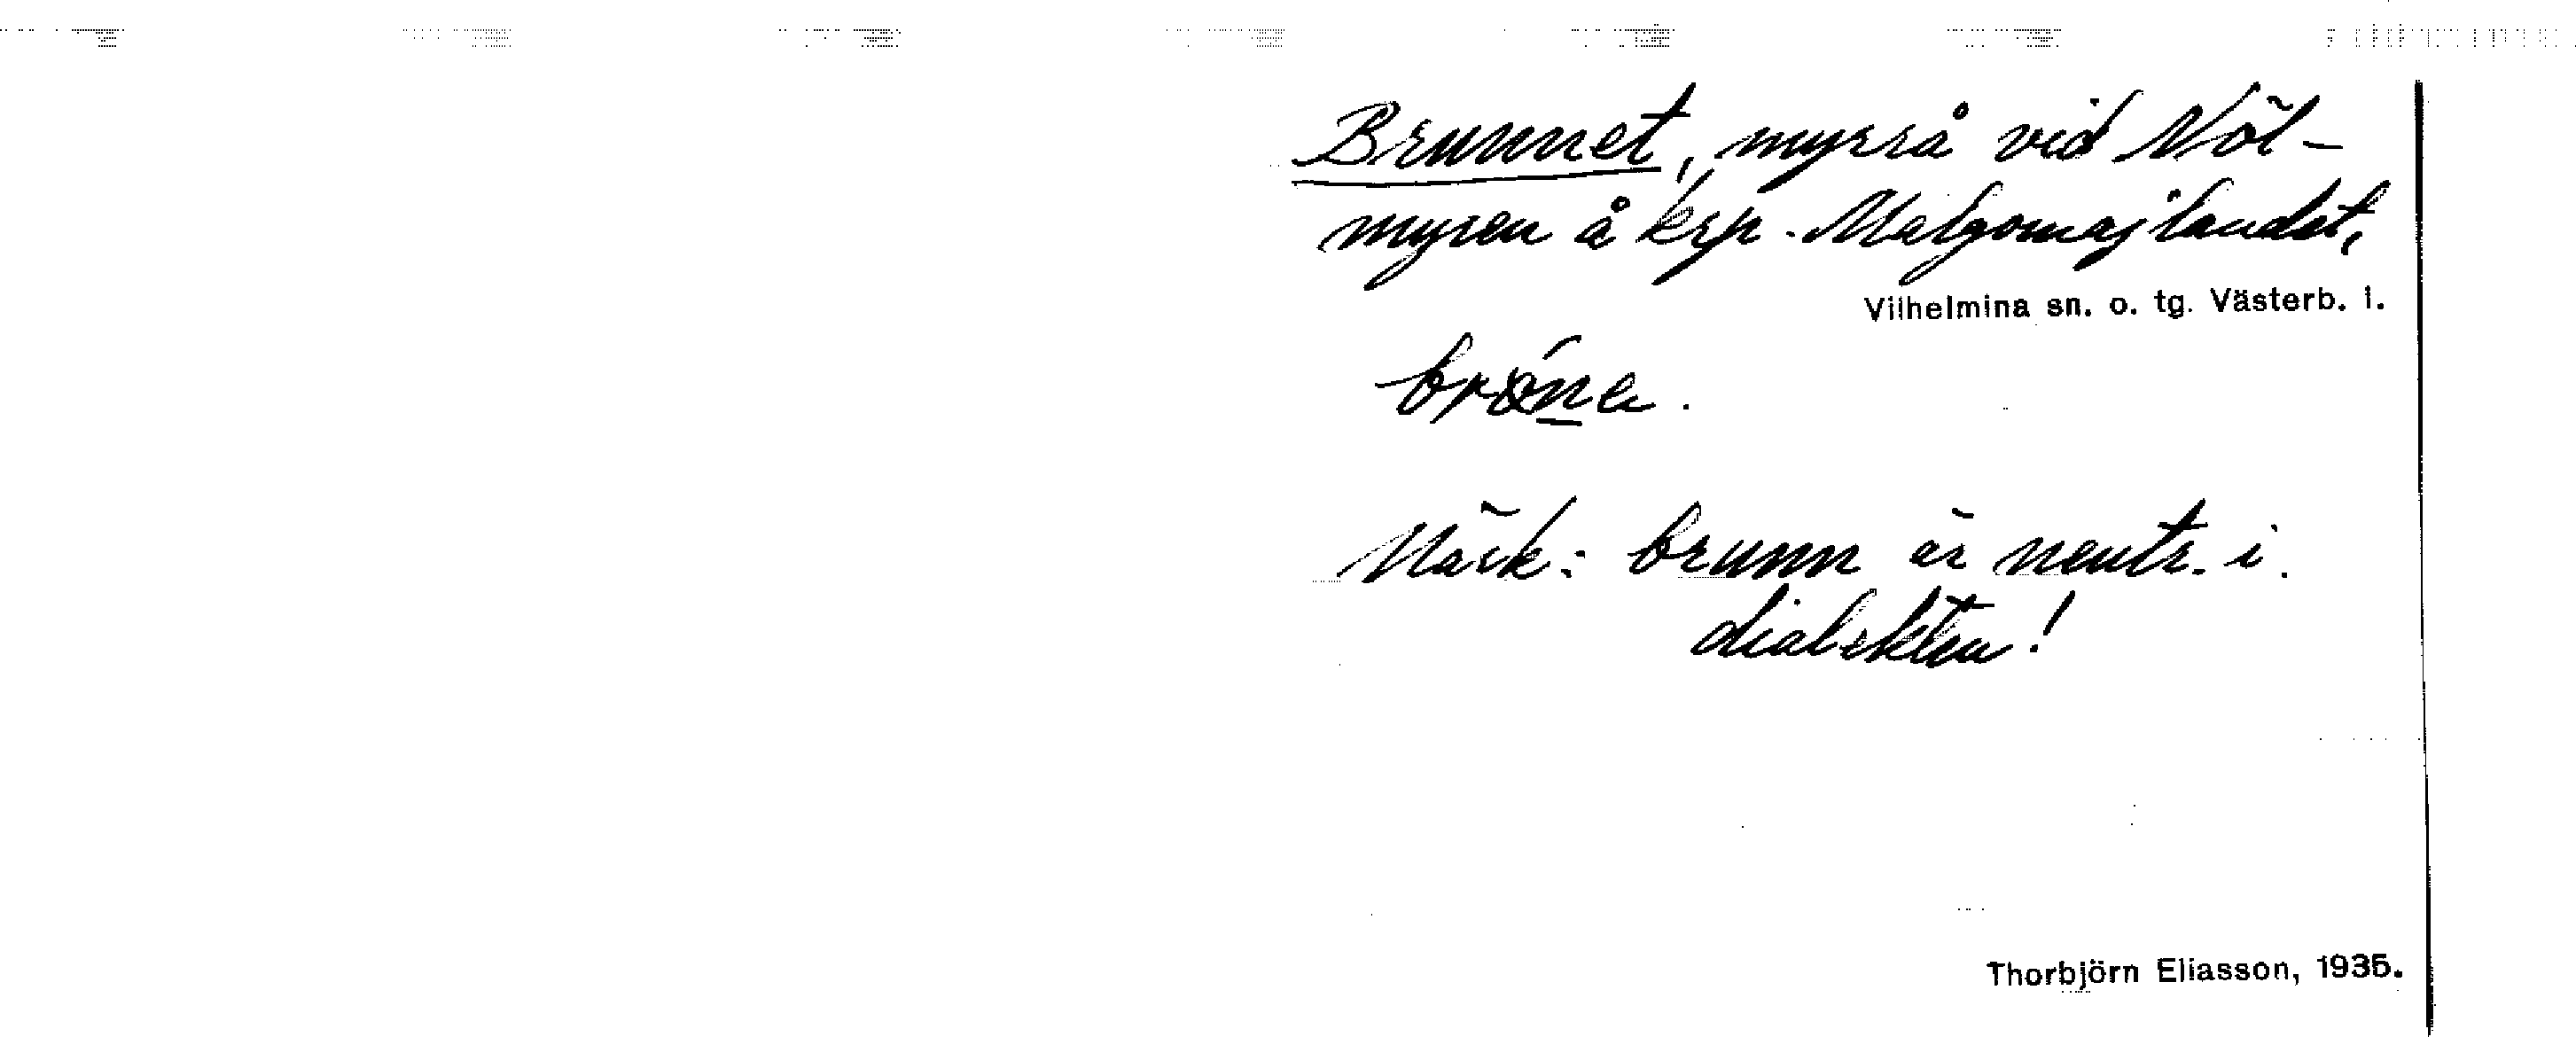 Brunnet, myrrå vid Nöl-
myren å krp. Malgomajlandet,
Vilhelmina sn. o. tg. Västerb. l.
Märk: brunn är neutr. i
dialekten!
Thorbjörn Eliasson, 1935.